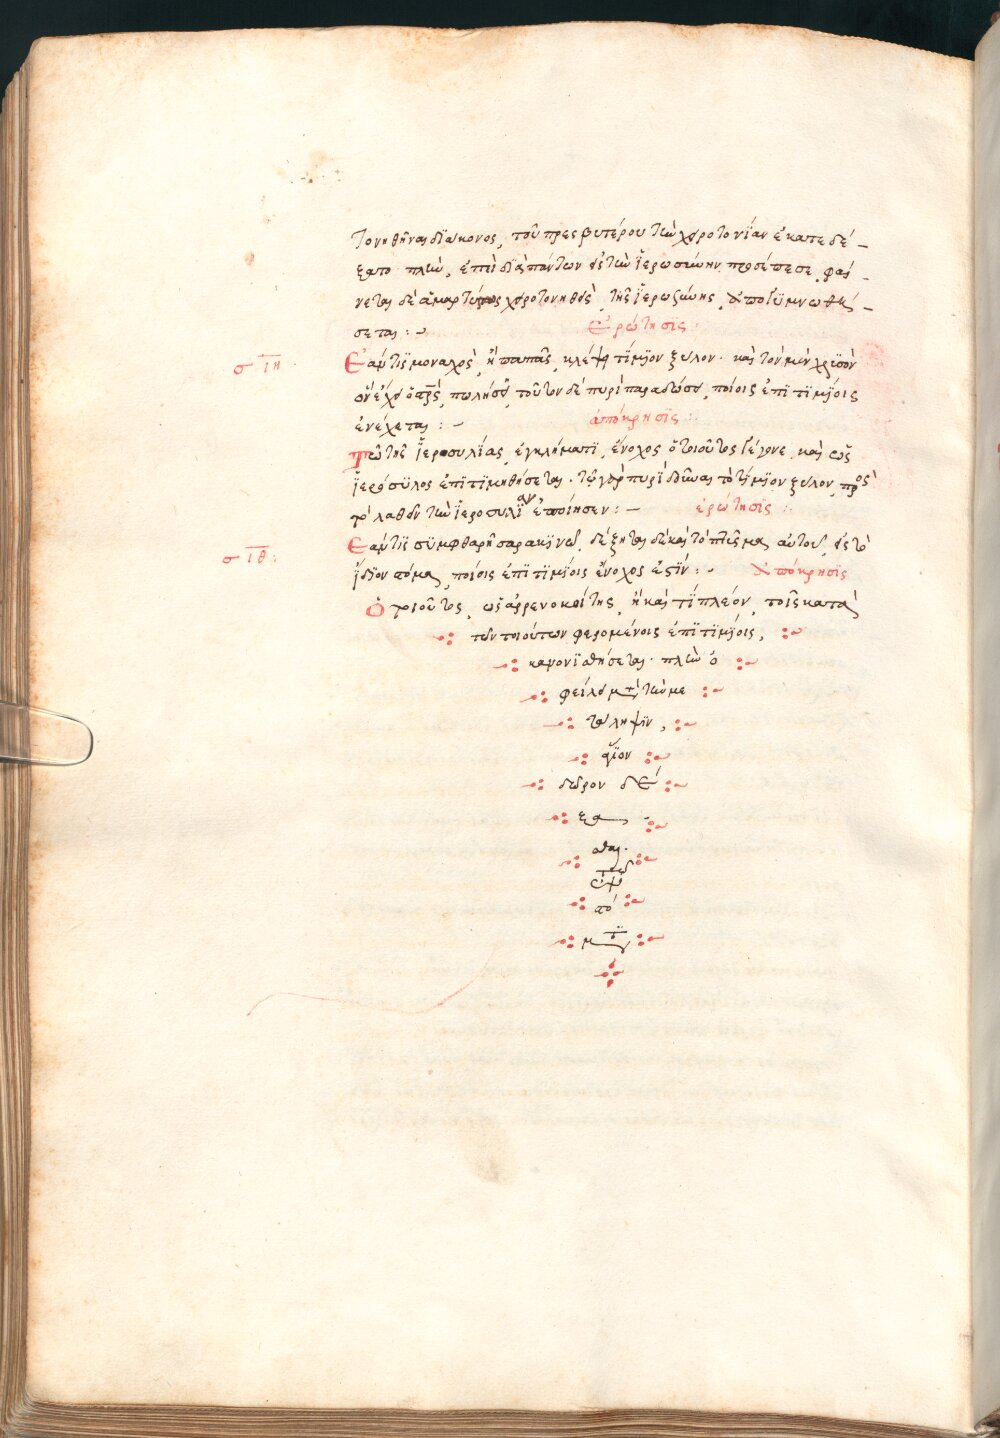 τονηθῆναι διάκονος, τοῦ πρεσβυτέρου τὴν χειροτονίαν ἐκατεδέ–
ξατο πλὴν, ἐπεὶ διὰ πάντων εἰς τὴν ἱερωσύνην προσέπεσε, φαί–
νεται δὲ ἁμαρτ χειροτονηθεὶς, τῆς ἱερωσύνης, ἀπογυμνωθή–
σεται :~ Ἐρώτησις
σιη Ἐάν τις μοναχὸς, ἢ παπᾶς, κλέψῃ τίμιον ξύλον· καὶ τὸν μὲν χρυσὸν
ὃν ἔχει ὁ σταυρὸς, πωλήσει, τοῦτον δὲ πυρὶ παραδώσει, ποίοις ἐπιτιμίοις
ἐνέχεται :~ ἀπόκρησις :
Τῷ τῆς ἱεροσυλίας, ἐγκλήματι, ἔνοχος ὁ τοιοῦτος γέγονε, καὶ ὡς
ἱερόσυλος ἐπιτιμηθήσεται. τῷ γὰρ πυρὶ δοῦναι τὸ τίμιον ξύλον, πρὸς
τὸ λαθεῖν τὴν ἱεροσυλίαν ἐποίησεν :– ἐρώτησις :
σιθ : Ἐάν τις συμφθαρῇ σαρακινῷ, δέξηται δὲ καὶ τὸ πτῦσμα αὐτοῦ, εἰς τὸ
ἴδιον στόμα, ποίοις ἐπιτιμίοις ἔνοχος ἐστίν :~ Ἀπόκρησις
Ὁ τοιοῦτος, ὡς ἀρρενοκοίτης, ἢ καὶ τί πλέον, τοῖς κατὰ
τῶν τοιούτων φερομένοις ἐπιτιμίοις,
κανονισθήσεται· πλὴν ὀ
φείλει μετὰ τὴν με
τάληψιν,
ἅγιον
δῶρον δέ
ξα
σθαι·